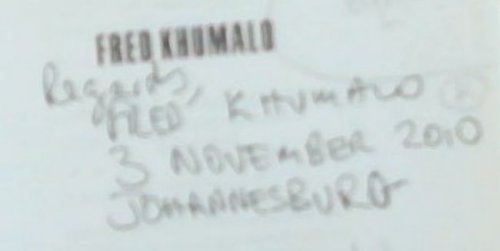 FRED KHUMALO
Regards,
FRED KHUMALO
3 NOVEMBER 2010
JOHANNESBURG